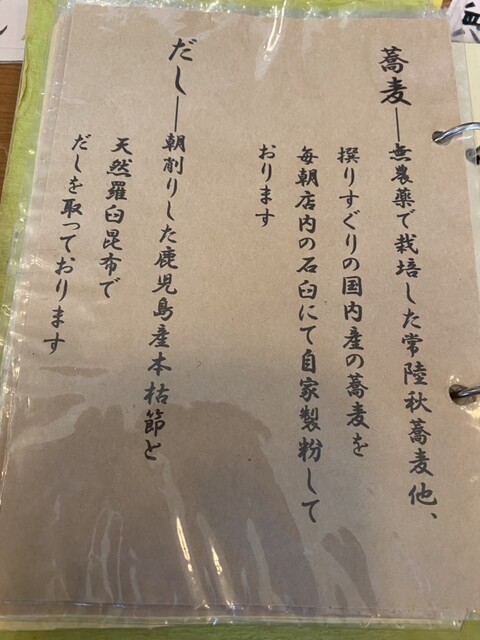 蕎麦―無農薬で栽培した常陸秋蕎麦他、
撰りすぐりの国内産の蕎麦を
毎朝店内の石臼にて自家製粉して
おります
だし―朝削りした鹿児島産本枯節と
天然羅臼昆布で
だしを取っております